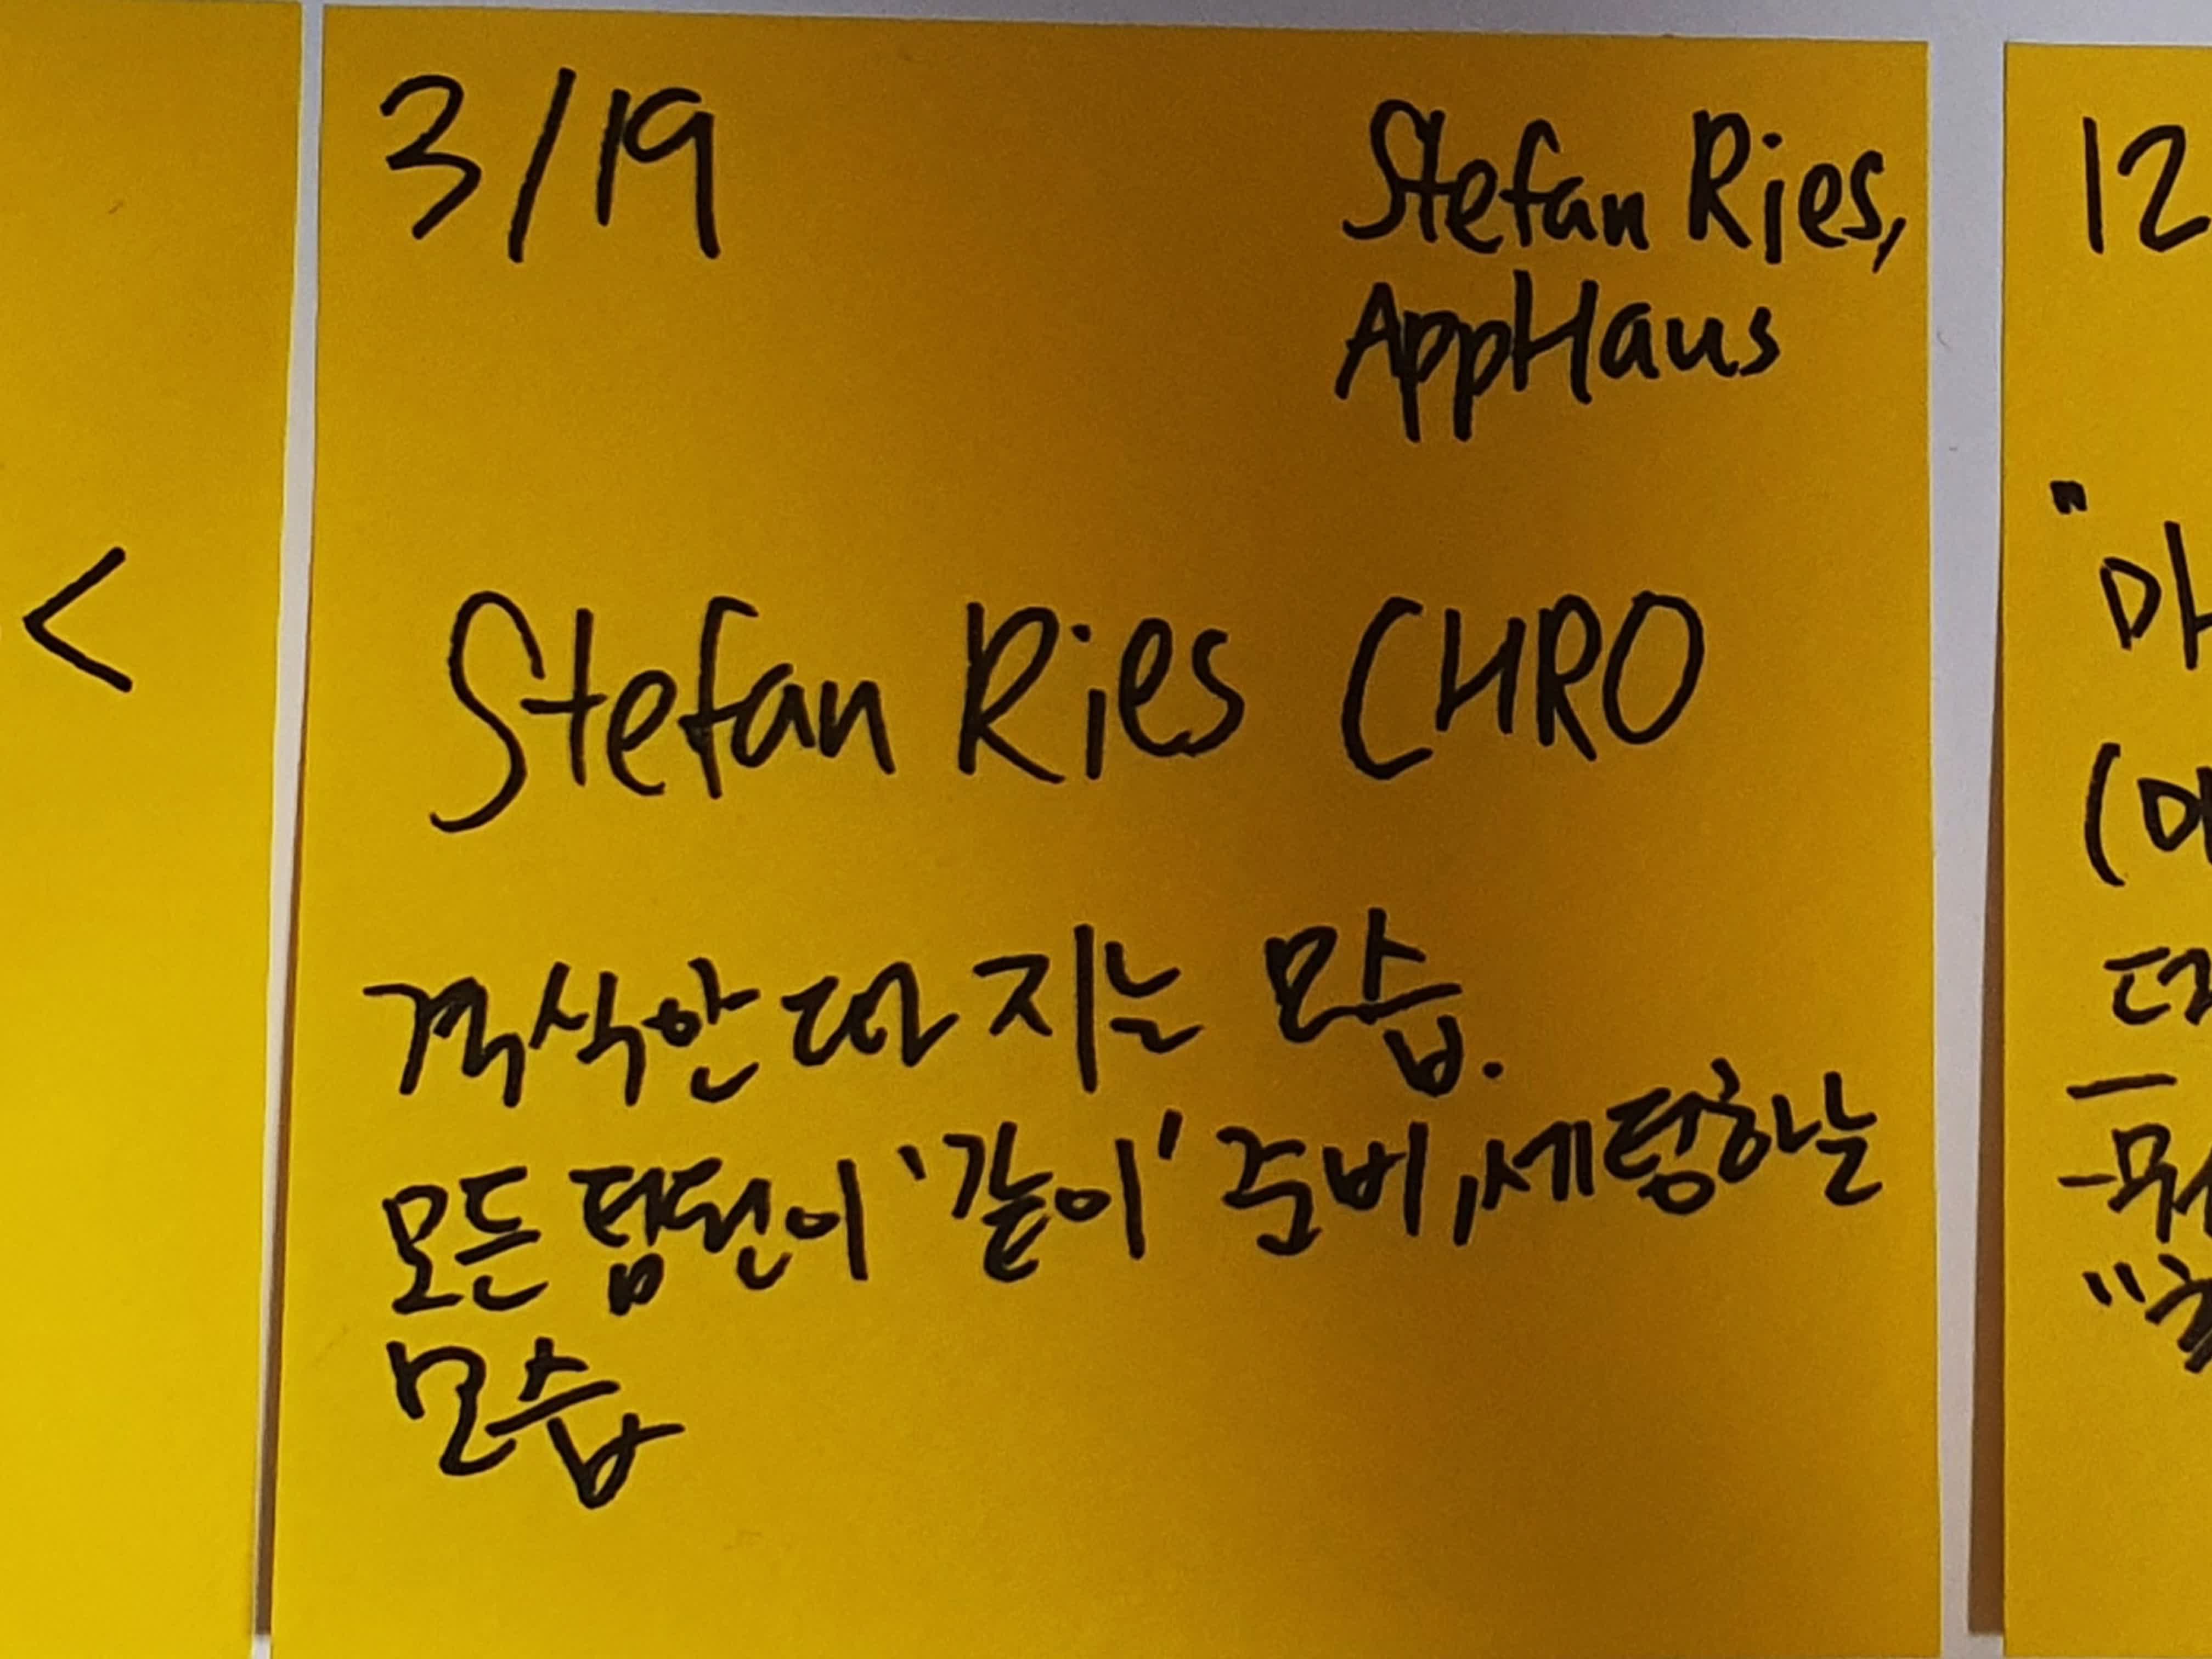 3/19
Stefan Ries,
AppHaus
Stefan Ries CHRO
격식 안 따지는 모습.
모든 팀원이 '같이' 준비, 세팅하는
모습
<
12
"마